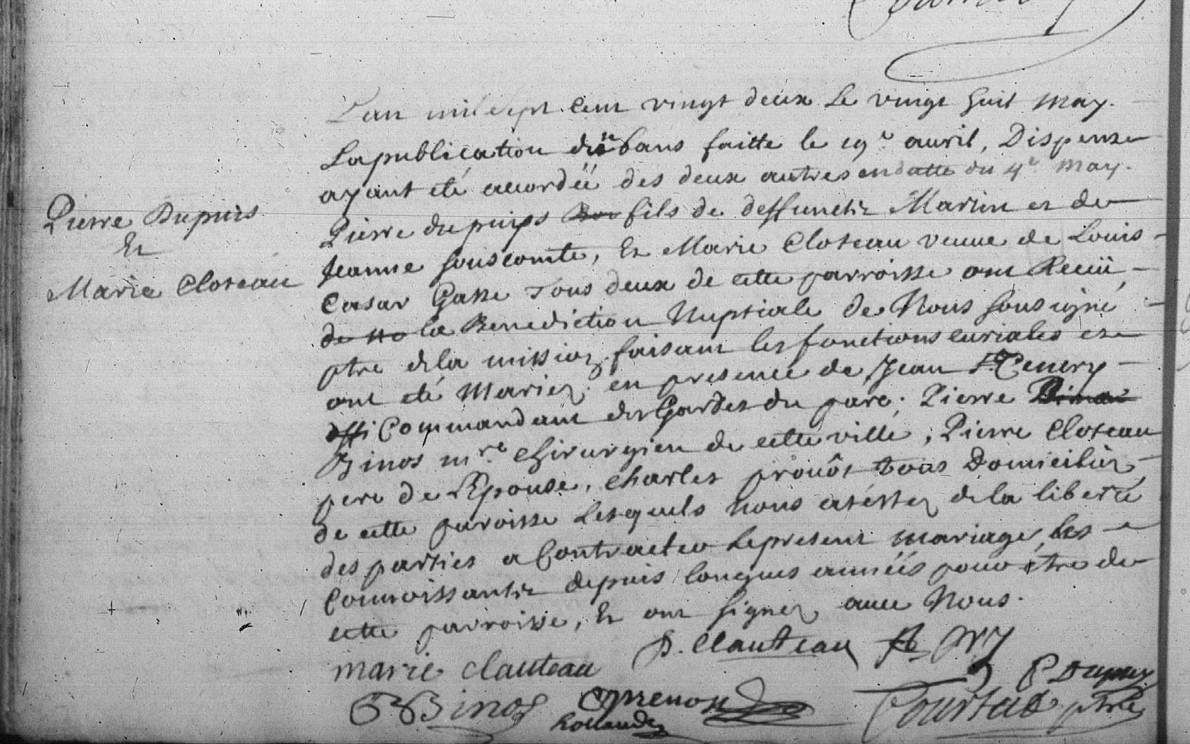 L'an mil sept cent vingt deux le vingt huit may.
La publication d'un bans faitte le 19e auril, Dispense
ayant eté accordéé des deux autres en datte du 4e May.
Pierre Dupuis
Et
Marie Cloteau
Pierre dupuips fils de deffuncts Martin et de
Jeanne souscomte, Et Marie Cloteau veuue de Louis
Casar Gasse tous deux de cette parroisse ont Receü
de la Benediction Nuptiale de Nous sousigné
ptre de la mission faisant les fonctions curiales et
ont eté Mariez en presence de Jean
Commandant des Gardes du parc, Pierre
Binos mre chirurgien de cette ville, Pierre Cloteau
pere de l'Epouse, charles prouôt tous Domiciliez
de cette paroisse Lesquels nous atestez de la liberté
des parties a Contracter le present mariage, les
Connoissants depuis longues annéés pour être de
cette parroisse, Et ont signez auec Nous.
marie clauteau P. Clauteau
P Dupuy
PBinos
ptre